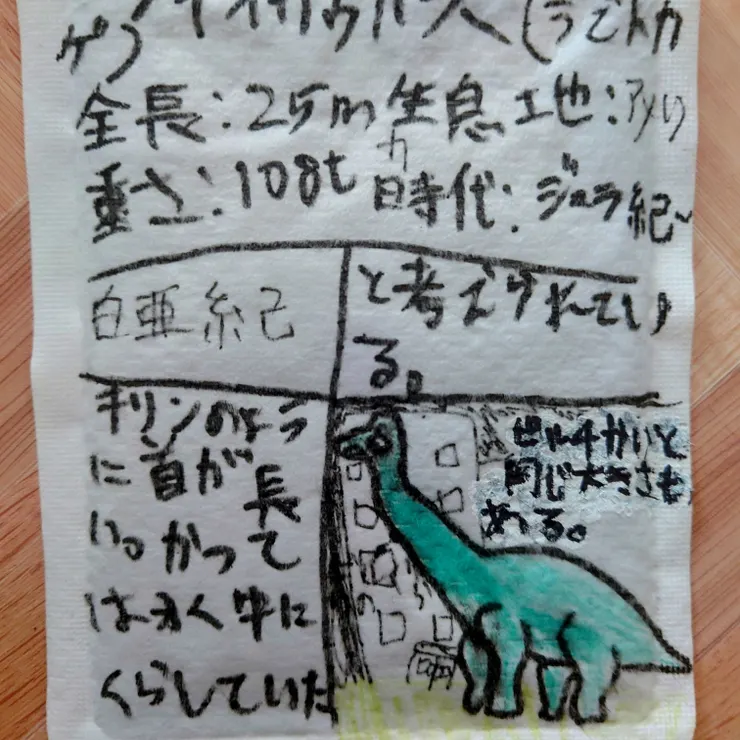 サウルス(うでトカ
ゲ)
全長:25m 生息地:アメリ
カ
重さ:108t 時代:ジュラ紀~
白亜紀
キリンのよう
に首が長
い。かつて
は
くらしていた
と考えられてい
る。
ビル4かいと
同じ大きさも
ある。